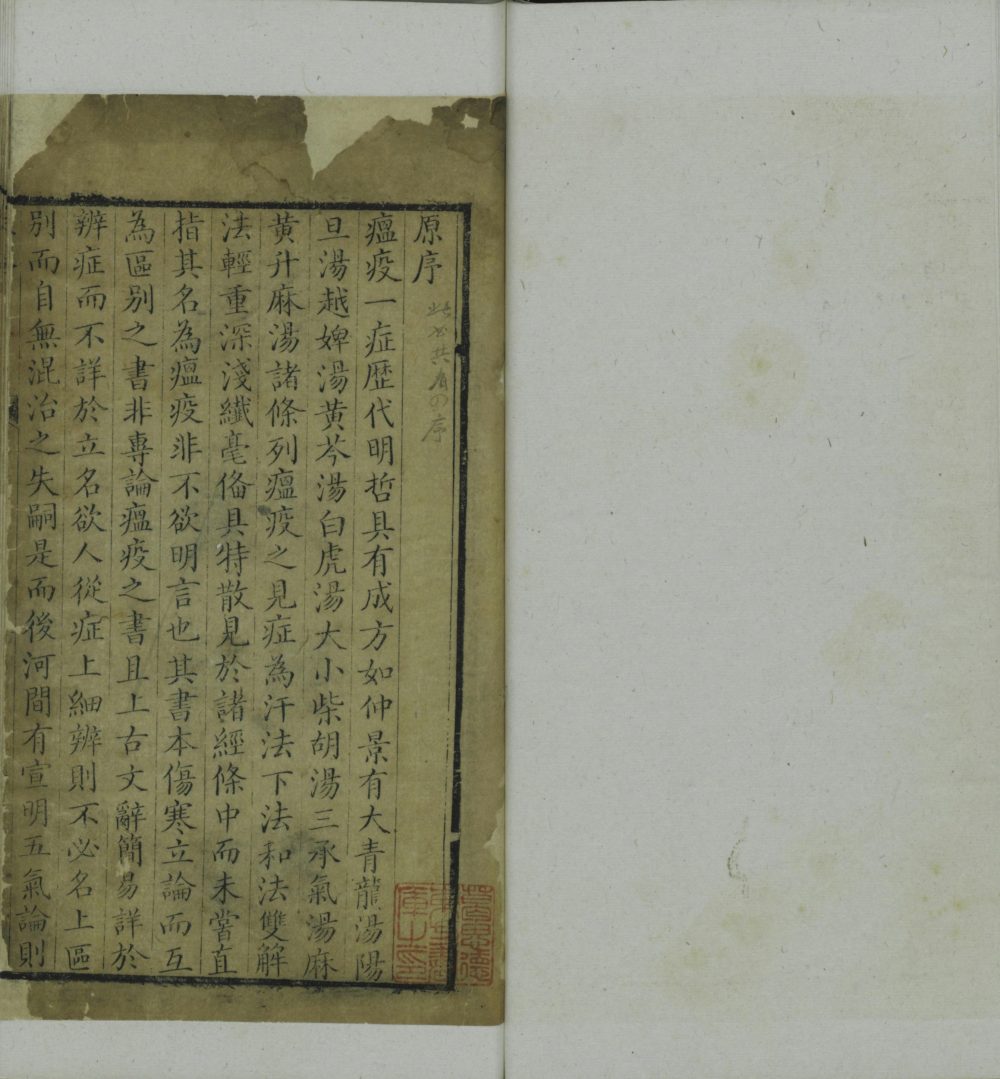 原序
瘟疫一症歴代明哲具有成方如仲景有大青龍湯陽
旦湯越婢湯黄芩湯白虎湯大小柴胡湯三承氣湯麻
黄升麻湯諸條列瘟疫之見症為汗法下法和法雙解
法輕重深淺纖毫俻具特散見於諸經條中而未嘗直
指其名為瘟疫非不欲明言也其書本傷寒立論而互
為區别之書非專論瘟疫之書且上古文辭簡易詳於
辨症而不詳於立名欲人從症上細辨則不必名上區
别而自無混治之失嗣是而後河間有宣明五氣論則